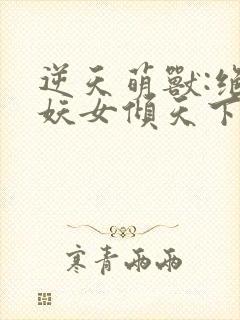 逆天萌獸:絕
妖女傾天下
寒青雨雨